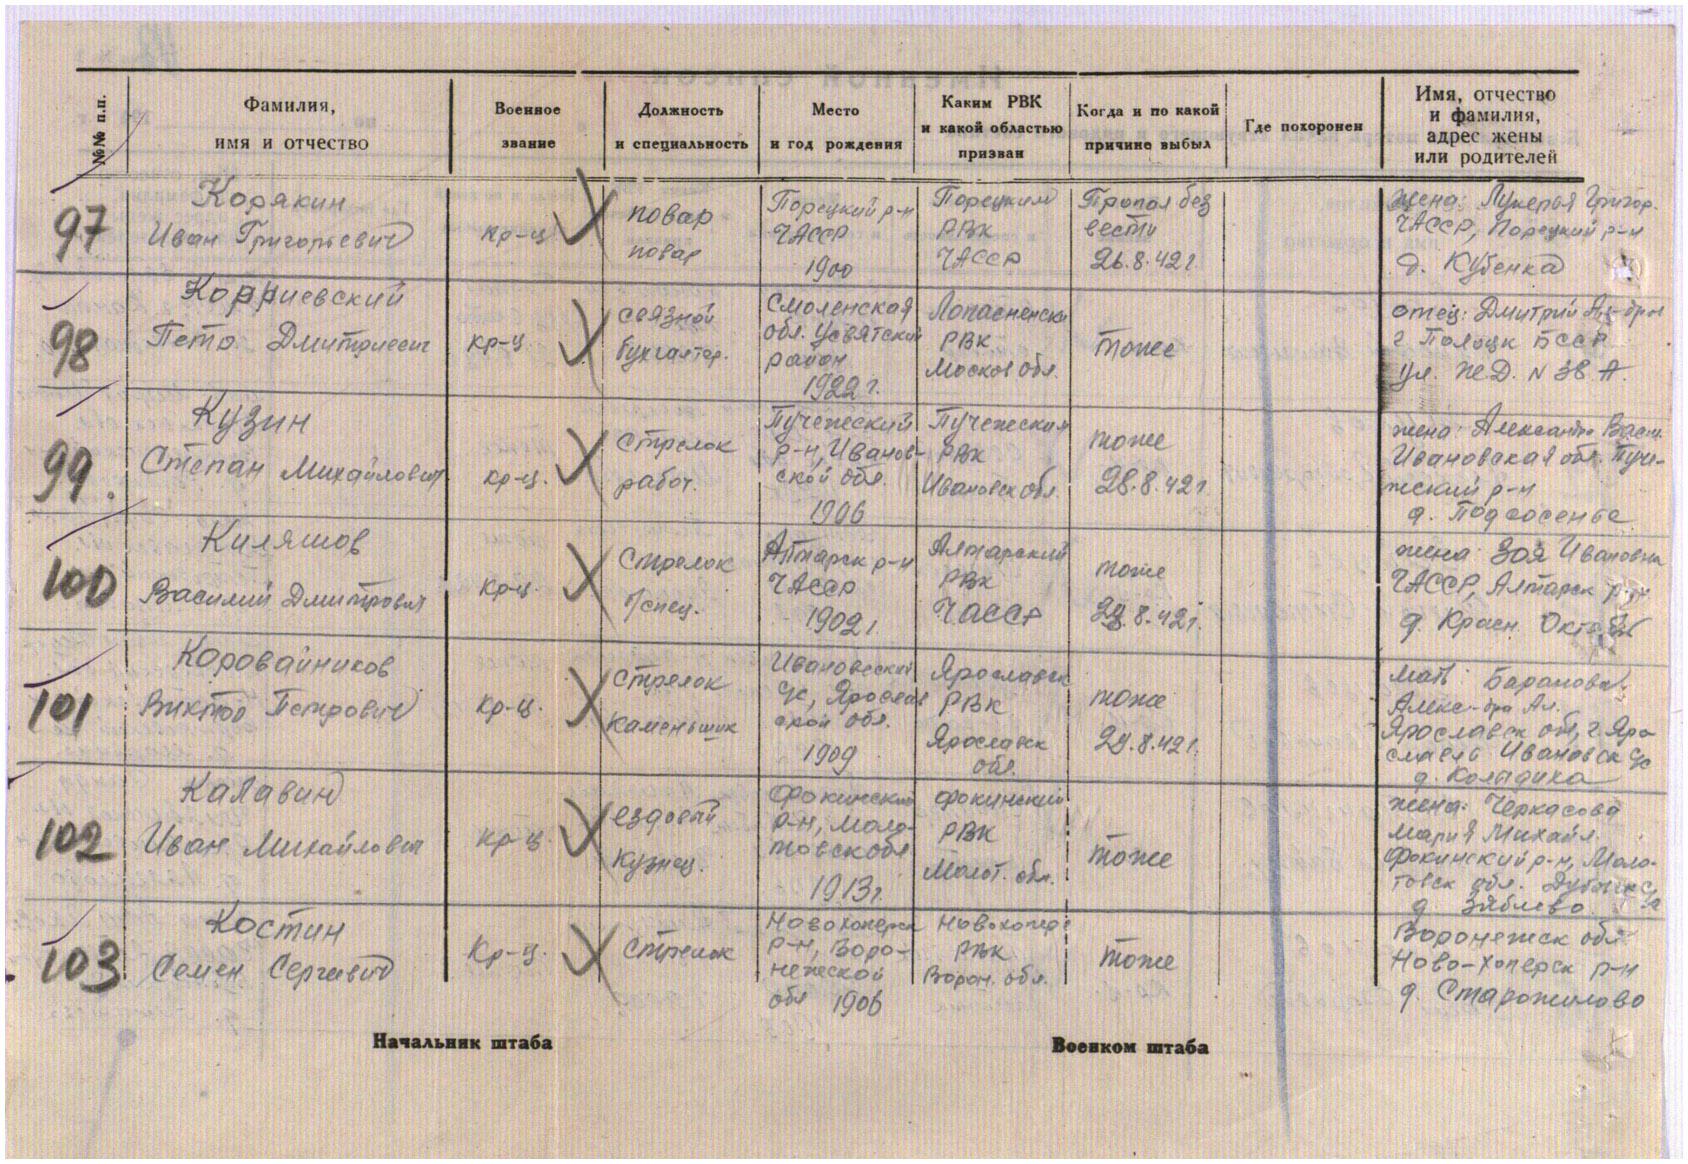 №№ п.п.
Фамилия,
имя и отчество
Военное
звание
Должность
и специальность
Место
и год рождения
Каким РВК
и какой областью
призван
Когда и по какой
причине выбыл
Где похоронен
Имя, отчество
и фамилия,
адрес жены
или родителей
97
Корякин
Иван Григорьевич
кр-ц
повар
повар
Порецкий р-н
ЧАССР
1900
Порецким
РВК
ЧАССР
Пропал без
вести
26.8.42г.
жена: Лукерья Григор.
ЧАССР, Порецкий р-н
д. Кубенка
98
Корриевский
Петр Дмитриевич
кр-ц
связной
бухгалтер.
Смоленская
обл. Усвятский
район
1922г.
Лопасненски
РВК
Москов обл.
тоже
отец: Дмитрий
г Полоцк БССР
ул. Ж.Д. N 38 А.
99.
Кузин
Степан Михайлович
кр-ц.
Стрелок
рабоч.
Пучежский
р-н, Иванов-
ской обл.
1906
Пучежским
РВК
Ивановск обл.
тоже
28.8.42г.
жена: Александра Васил.
Ивановская обл. Пуче-
жский р-н
д. Подсосенье
100
Киляшов
Василий Дмитрович
кр-ц.
Стрелок
б/спец.
Алтарск р-н
ЧАССР
1902г.
Алтарский
РВК
ЧАССР
тоже
29.8.42г.
жена: Зоя Ивановна
ЧАССР, Алтарск р-н
д. Красн. Октяб
101
Коровайников
Виктор Петрович
кр-ц.
Стрелок
каменьщик
Ивановский
с/с, Ярослав
ской обл.
1909
Ярославск
РВК
Ярославск
обл.
тоже
29.8.42г.
мать: Баранова
Алекс-дра Ал.
Ярославск обл, г. Яро
славль Ивановск с/с
д. Коладиха
102
Калавин
Иван Михайлович
кр-ц
ездовый
Кузнец.
Фокинский
р-н, Моло-
товск обл
1913г.
Фокинский
РВК
Молот. обл.
тоже
жена: Черкасова
Мария Михайл.
Фокинский р-н, Моло-
товск обл.
д Зяблево
103
Костин
Семен Сергевич
Кр-ц.
Стрелок
Новохоперск
р-н, Воро-
нежской
обл 1906
Новохопер
РВК
Ворон. обл.
тоже
Воронежск обл
Ново-хоперск р-н
д. Старожилово
Начальник штаба
Военком штаба